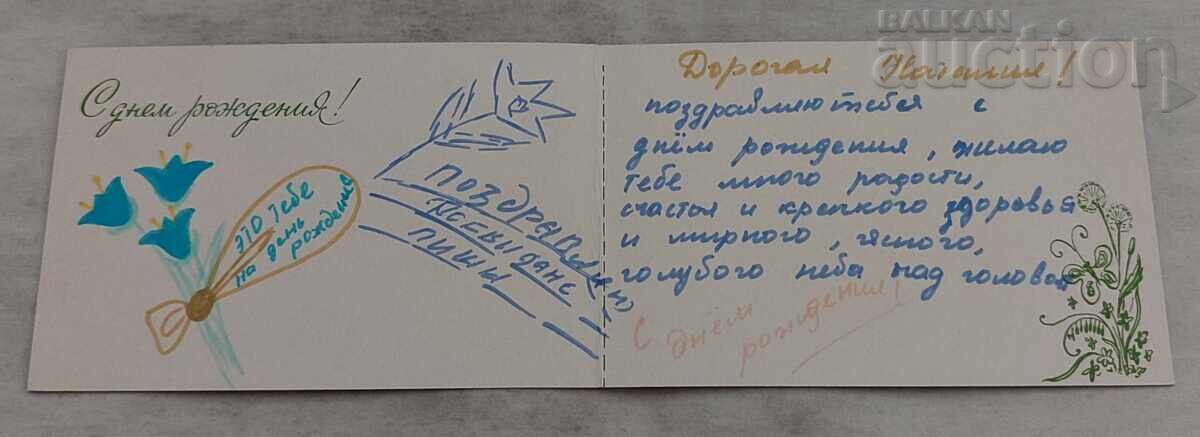 С днем рождения!
ЭТО тебе
на день
рождение
ПОЗДРАВЛЯЮ
ПИШЫ
Дорогая Наталия!
поздравляю тебя с
днём рождения, жилаю
тебе много радости,
счастья и крепкого здоровья
и мирного, ясного,
голубого неба над головой
С днём
рождения!
BALKAN
auction